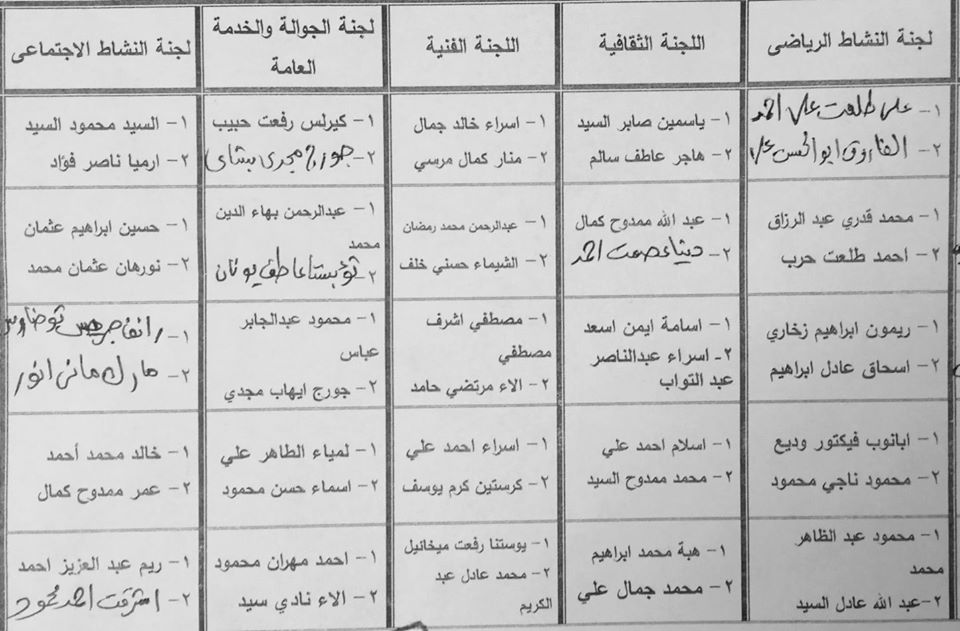 لجنة النشاط الرياضى
اللجنة الثقافية
اللجنة الفنية
لجنة الجوالة والخدمة
العامة
لجنة النشاط الاجتماعى
١- على طلعت على احمد
٢- الفاروق ابو الحسن على
١- ياسمين صابر السيد
٢- هاجر عاطف سالم
١- اسراء خالد جمال
٢- منار كمال مرسي
١- كيرلس رفعت حبيب
٢- جورج مجدى بشاى
١- السيد محمود السيد
٢- ارميا ناصر فؤاد
١- محمد قدري عبد الرزاق
٢- احمد طلعت حرب
١- عبد الله ممدوح كمال
٢- دينا عصمت احمد
١- عبدالرحمن محمد رمضان
٢- الشيماء حسني خلف
١- عبدالرحمن بهاء الدين
محمد
٢- عاطف يونان
١- حسين ابراهيم عثمان
٢- نورهان عثمان محمد
١- ريمون ابراهيم زخاري
٢- اسحاق عادل ابراهيم
١- اسامة ايمن اسعد
٢- اسراء عبدالناصر
عبد التواب
١- مصطفي اشرف
مصطفي
٢- الاء مرتضي حامد
١- محمود عبدالجابر
عباس
٢- جورج ايهاب مجدي
١- جرجس
٢- مارك هانى انور
١- ابانوب فيكتور وديع
٢- محمود ناجي محمود
١- اسلام احمد علي
٢- محمد ممدوح السيد
١- اسراء احمد علي
٢- كرستين كرم يوسف
١- لمياء الطاهر علي
٢- اسماء حسن محمود
١- خالد محمد أحمد
٢- عمر ممدوح كمال
١- محمود عبد الظاهر
محمد
٢-عبد الله عادل السيد
١- هبة محمد ابراهيم
٢- محمد جمال علي
١- يوستنا رفعت ميخانيل
٢- محمد عادل عبد
الكريم
١- احمد مهران محمود
٢- الاء نادي سيد
١- ريم عبد العزيز احمد
٢- اشرقت احمد محمود